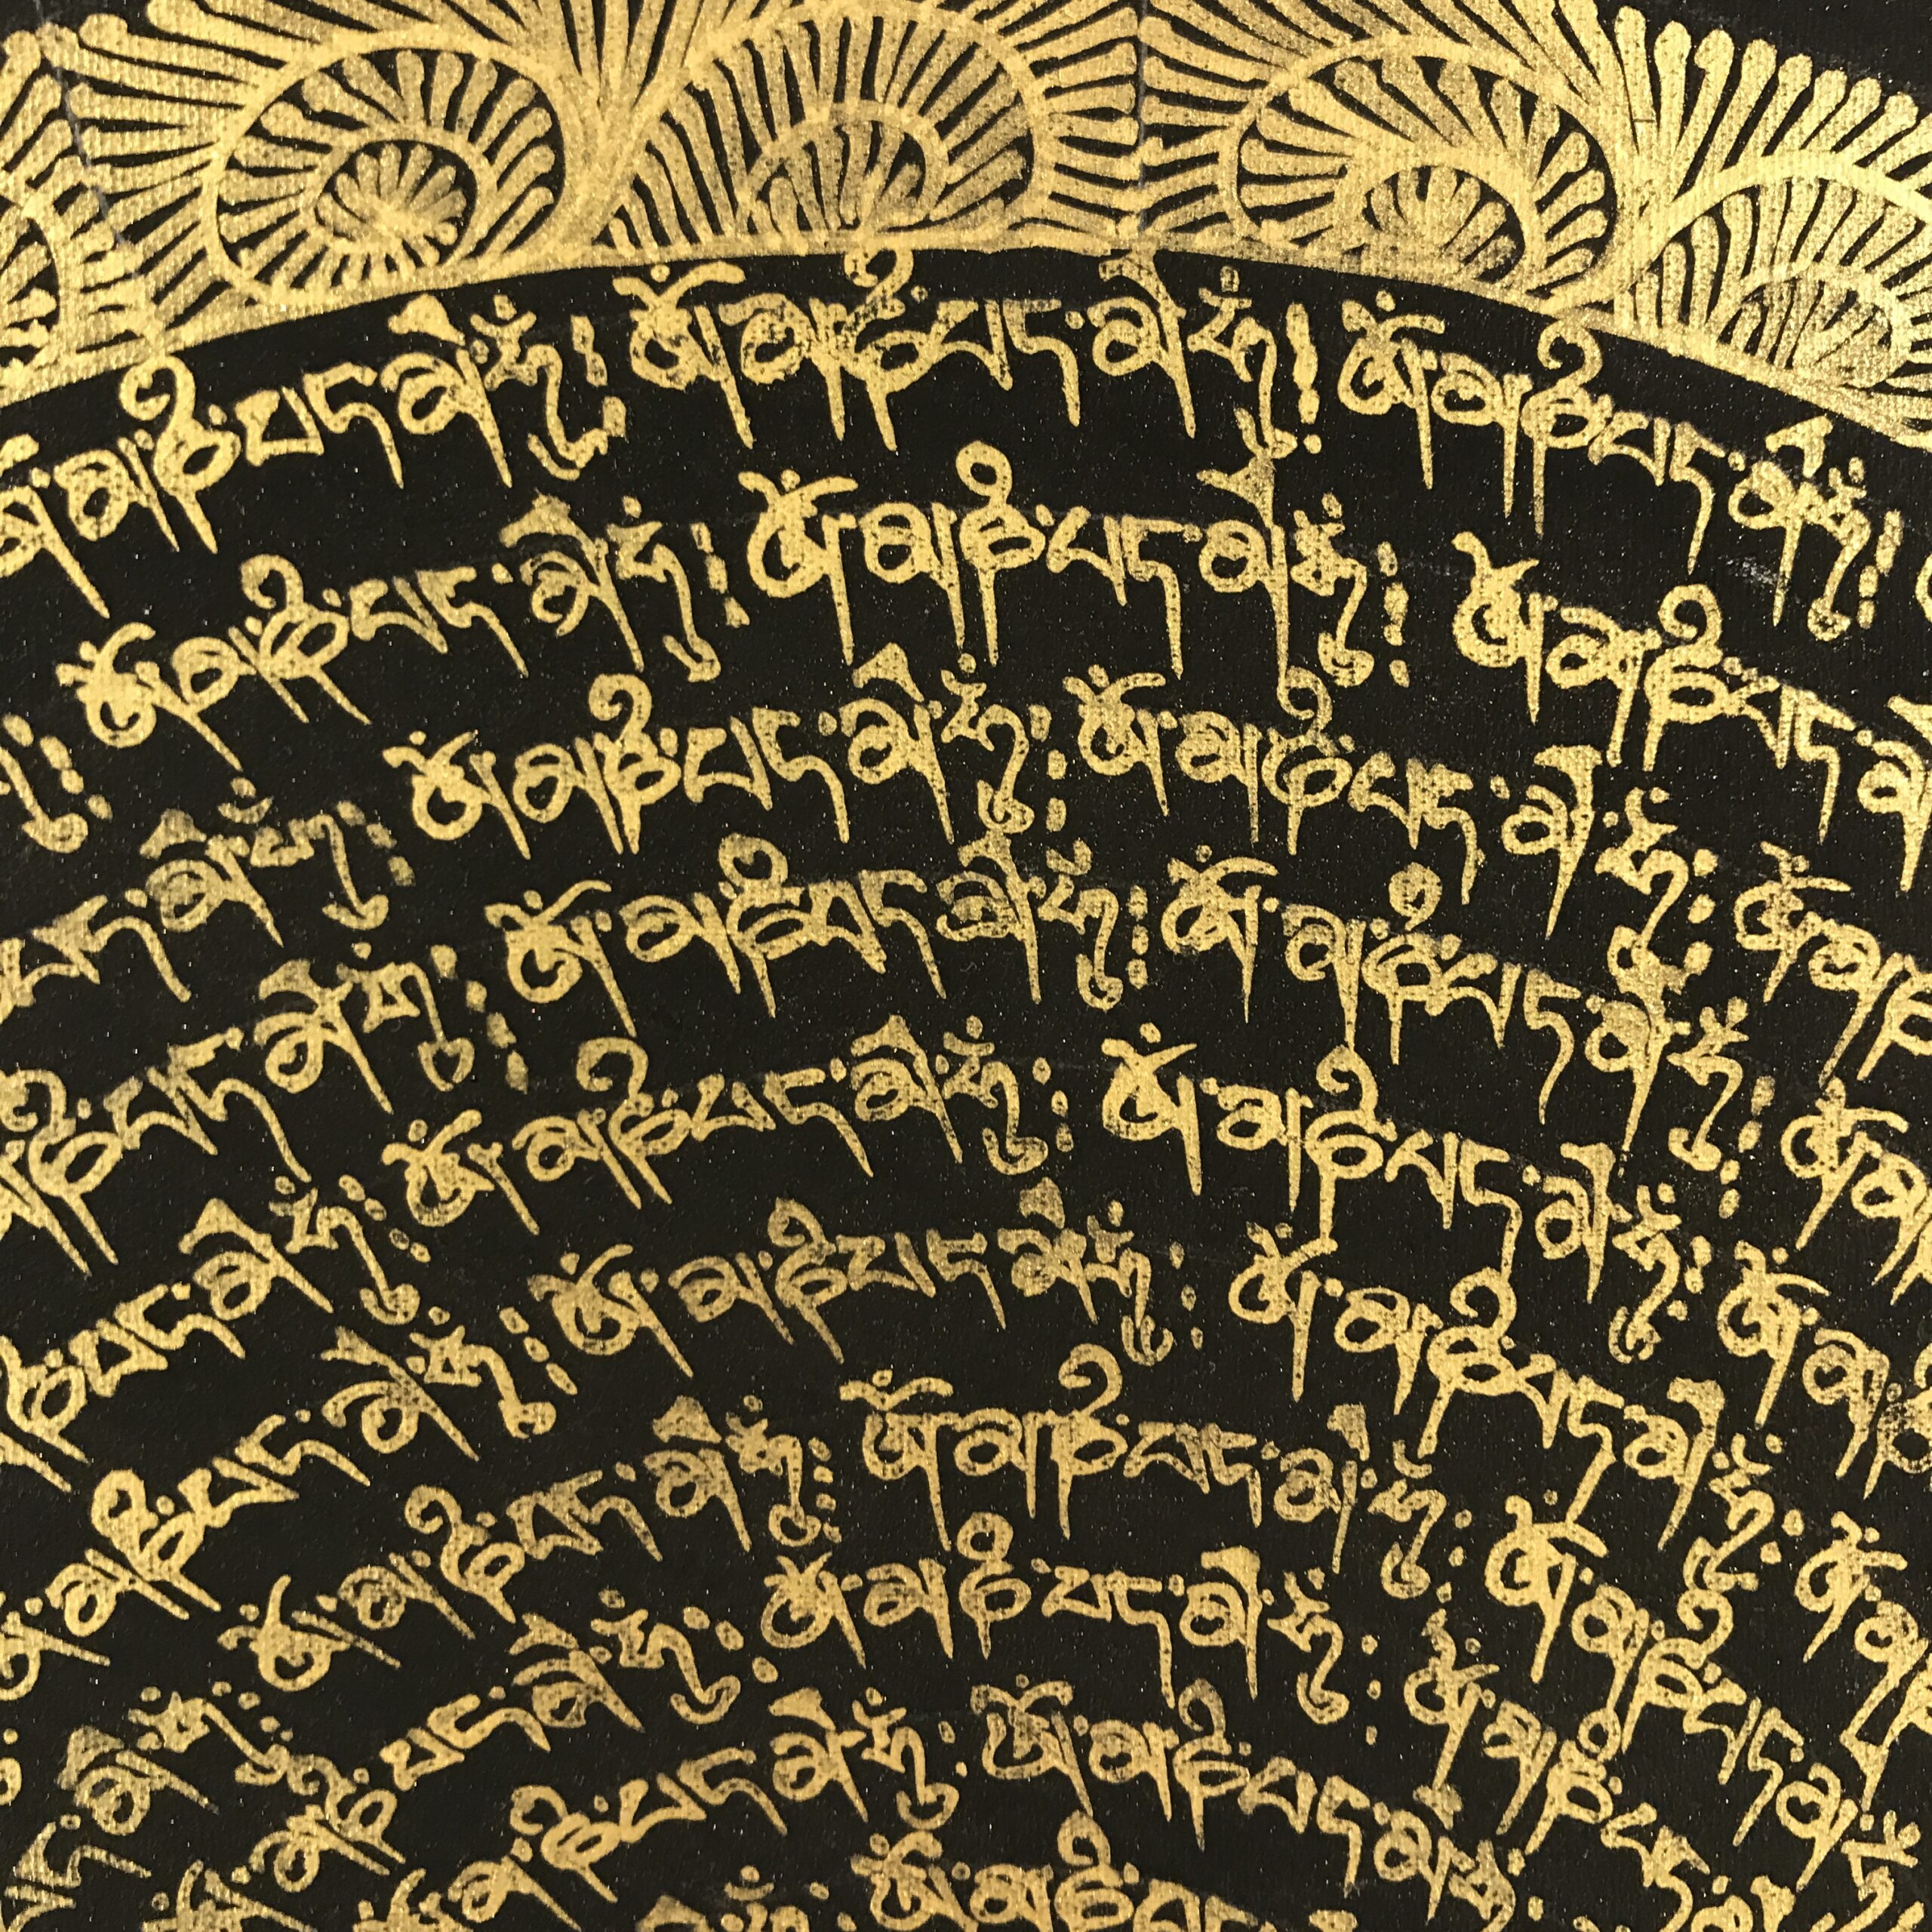 ཨོཾ་མ་ཎི་པད་མེ་ཧཱུྃ༔ ཨོཾ་མ་ཎི་པད་མེ་ཧཱུྃ༔ ཨོཾ་མ་ཎི་པད་མེ་ཧཱུྃ༔
ཧཱུྃ༔ ཨོཾ་མ་ཎི་པད་མེ་ཧཱུྃ༔ ཨོཾ་མ་ཎི་པད་མེ་ཧཱུྃ༔ ཨོཾ་མ་ཎི་པད་མེ
པད་མེ་ཧཱུྃ༔ ཨོཾ་མ་ཎི་པད་མེ་ཧཱུྃ༔ ཨོཾ་མ་ཎི་པད་མེ་ཧཱུྃ༔ ཨོཾ་མ་
ཎི་པད་མེ་ཧཱུྃ༔ ཨོཾ་མ་ཎི་པད་མེ་ཧཱུྃ༔ ཨོཾ་མ་ཎི་པད་མེ་ཧཱུྃ༔ ཨོཾ་མ་
ཎི་པད་མེ་ཧཱུྃ༔ ཨོཾ་མ་ཎི་པད་མེ་ཧཱུྃ༔ ཨོཾ་མ་ཎི་པད་མེ་ཧཱུྃ༔ ཨོཾ་མ་
མ་ཎི་པད་མེ་ཧཱུྃ༔ ཨོཾ་མ་ཎི་པད་མེ་ཧཱུྃ༔ ཨོཾ་མ་ཎི་པད་མེ་ཧཱུྃ༔ ཨོཾ་མ་
ཨོཾ་མ་ཎི་པད་མེ་ཧཱུྃ༔ ཨོཾ་མ་ཎི་པད་མེ་ཧཱུྃ༔ ཨོཾ་མ་ཎི་པད་མེ་ཧཱུྃ
མ་ཎི་པད་མེ་ཧཱུྃ༔ ཨོཾ་མ་ཎི་པད་མེ་ཧཱུྃ༔ ཨོཾ་མ་ཎི་པད་
ཨོཾ་མ་ཎི་པད་མེ་ཧཱུྃ༔ ཨོཾ་མ་ཎི་པད་མེ་ཧཱུྃ༔
ཨོཾ་མ་ཎི་པད་